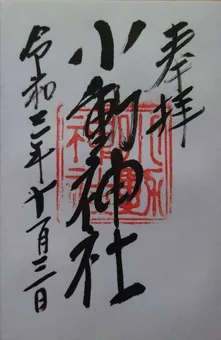 奉拝
小動神社
令和二年十一月三日